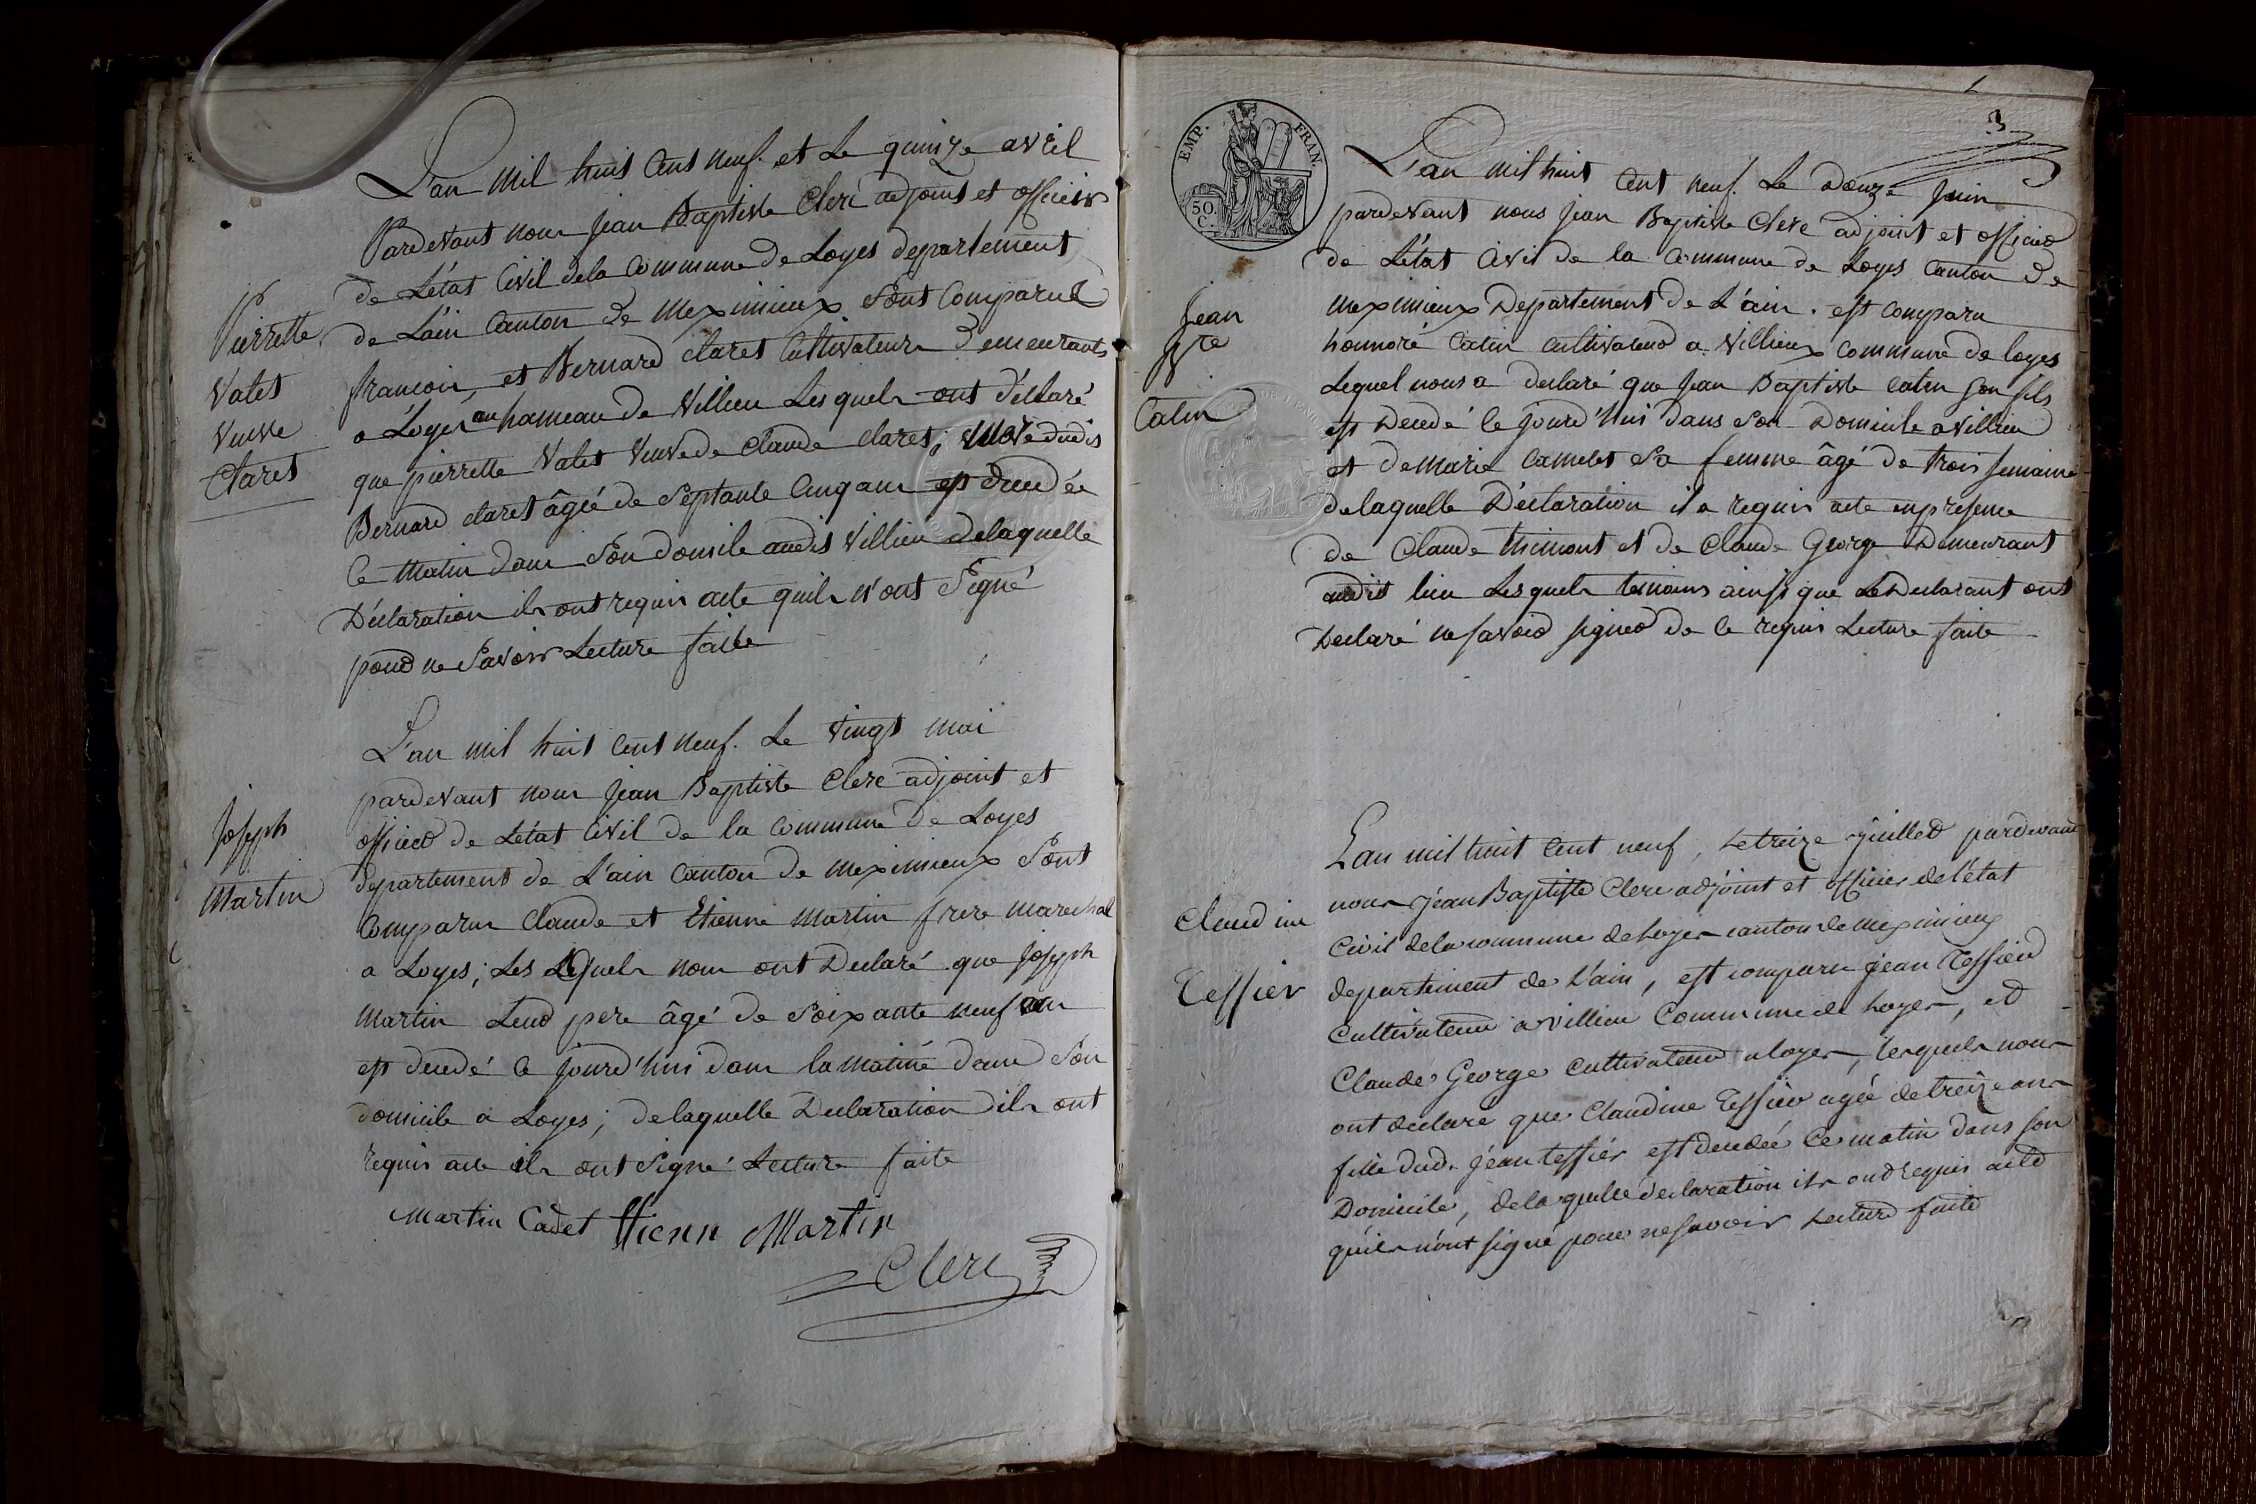 L'an mil huit Cent neuf. et Le quinze avril
Pardevant nous Jean Baptiste Clerc adjoint et officier
de L'état Civil dela Commune de Loyes departement
de L'ain Canton de Meximieux Sont Comparus
Pierrette
Valet
veuve
Claret
francois et Bernard claret Cultivateurs demeurants
a Loyes au hameau de Villieu Les quels ont déclaré
que pierrette Valet Veuve de Claude claret, Mere dudit
Bernard claret âgée de Septante Cinq ans est decedée
Ce Matin dans Son domsile audit Villieu delaquelle
Déclaration ils ont requis acte quils n'ont Signé
pour ne Savoir Lecture faite
L'an mil huit Cent neuf. Le vingt mai
pardevant nous Jean Baptiste Clerc adjoint et
officier de L'état Civil de la Commune de Loyes
departement de L'ain Canton de Meximieux Sont
Joseph
Martin
Comparus Claude et Etienne Martin frere marechal
a Loyes; Les Lequels nous ont Declaré que Joseph
Martin Leur pere âgé de Soixante neuf ans
est decedé Ce Jourd'hui dans la matiné dans Son
domicile a Loyes; delaquelle Declaration ils ont
requis acte ils ont Signé Lecture faite
Martin Cadet Etienn Martin
Clerc
3
EMP. FRAN.
50. C.
L'an mil huit Cent neuf. Le Douze Juin
pardevant nous Jean Baptiste Clerc adjoint et officier
de L'état Civil de la Commune de Loyes Canton de
Meximieux Departement de L'ain. est comparu
Jean
Bte
Catin
honnoré Catin cultivateur a Villieux commune de loyes
Lequel nous a declaré que Jean Baptiste catin son fils
est Decedé le jourd'hui dans Son Domicile a Villieu
et de Marie Camelet Sa femme âgé de trois semaine
delaquelle Déclaration il a requis acte en presence
de Claude Thimont et de Claude George Demeurant
audit lieu Lesquels temoins ainsi que Le Declarant ont
Declaré ne savoir signer de Ce requis Lecture faite
L'an mil huit Cent neuf, Le treize Juillet pardevant
nous Jean Baptiste Clerc adjoint et officier de l'état
Civil dela commune de Loyes canton de meximieux
Claudine
Tessier
departement de L'ain, est comparu jean Tessier
Cultivateur a villieu Commune de Loyes, et
Claude George Cultivateur a loyes, lesquels nous
ont declare que Claudine Tessier agée de treize ans
fille dud. jean tessier est decedée Ce matin dans son
Domicile, dela quelle declaration ils ont requis acte
qu'ils n'ont signé pour ne savoir Lecture faite